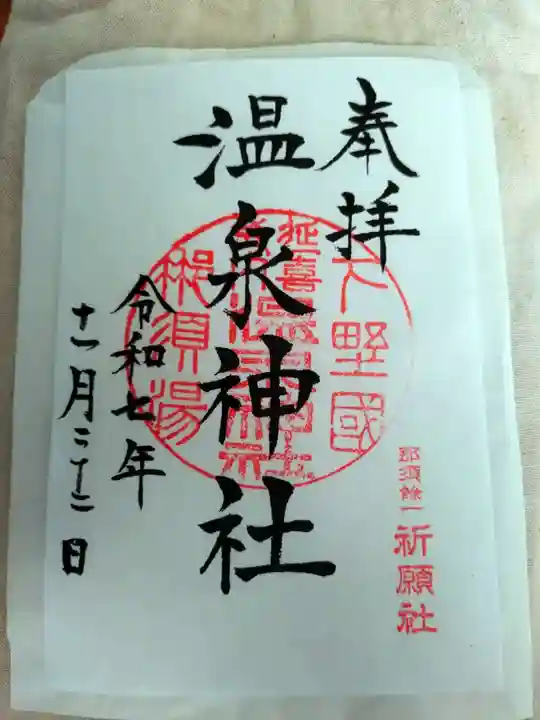 奉拝
下野國
延喜
温泉神社
那須湯
令和七年
十一月二十二日
那須餘一
祈願社